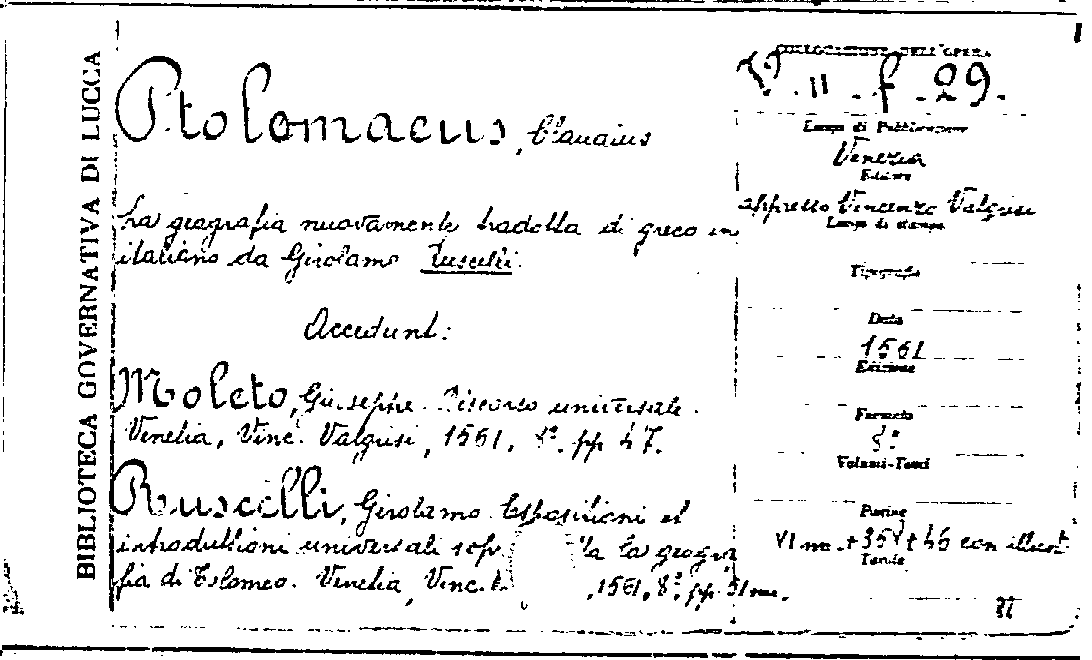 BIBLIOTECA GOVERNATIVA DI LUCCA
Ptolomaeus, Claudius
La geografia nuovamente tradotta di greco in
italiano da Girolamo Ruscelli.
Accedunt:
Moleto, Giuseppe. Discorso universale.
Venetia, Vinc. Valgrisi, 1561, 8º. pp 47.
Ruscelli, Girolamo. Espositioni et
introduttioni universali sop la geogra
fia di Tolomeo. Venetia, Vinc. 1561, 8º. pp. 51 nn.
COLLOCAZIONE DELL'OPERA
II . f . 29.
Luogo di Pubblicazione
Venezia
Editore
appresso Vincenzo Valgrisi
Luogo di stampa
Tipografo
Data
1561
Edizione
Formato
8º
Volumi-Tomi
Pagine
VI nn. + 358 + 46 con illust
Tavole